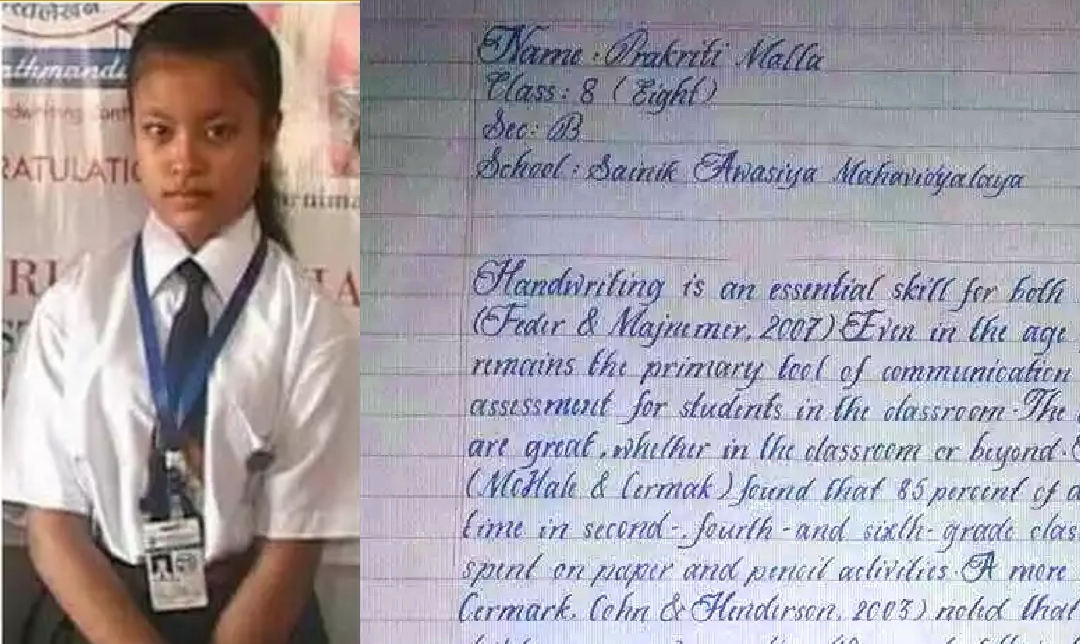 त्यलेखन
athmandu
RATULATIO
RI
IA
Name : Prakriti Malla
Class : 8 (Eight)
Sec : B
School : Sainik Awasiya Mahavidyalaya
Handwriting is an essential skill for both
(Feder & Majnemer, 2007) Even in the age
remains the primary tool of communication
assessment for students in the classroom. The
are great, whether in the classroom or beyond.
(McHale & Cermak) found that 85 percent of
time in second-, fourth-and sixth-grade clas
spent on paper and pencil activities. A more
Cermark, Cohn & Hinderson, 2003) noted that